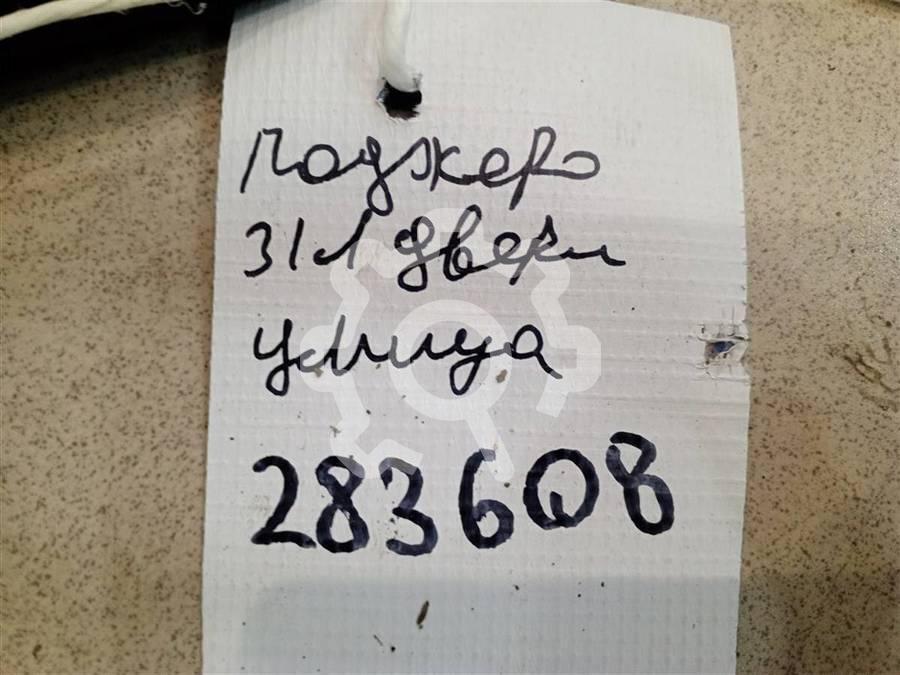 Паджеро
З/Л двери
улица
283608